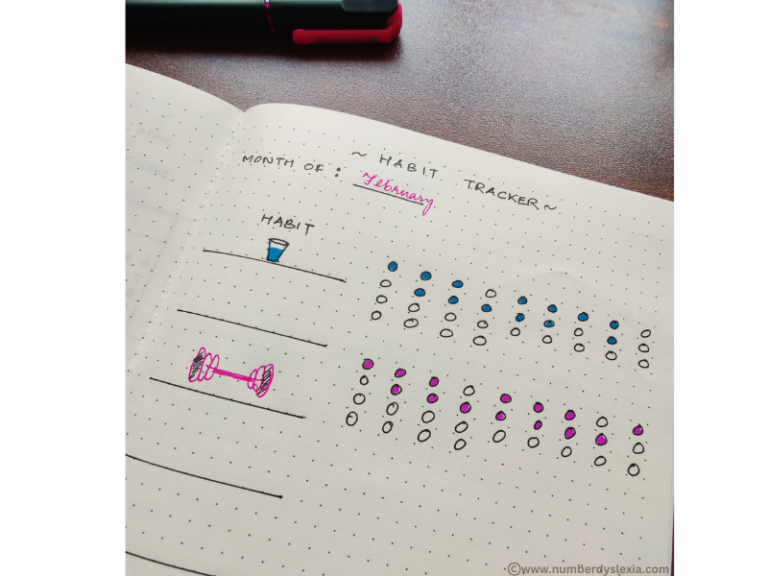 ~ HABIT TRACKER ~
MONTH OF : February
HABIT
©www.numberdyslexia.com